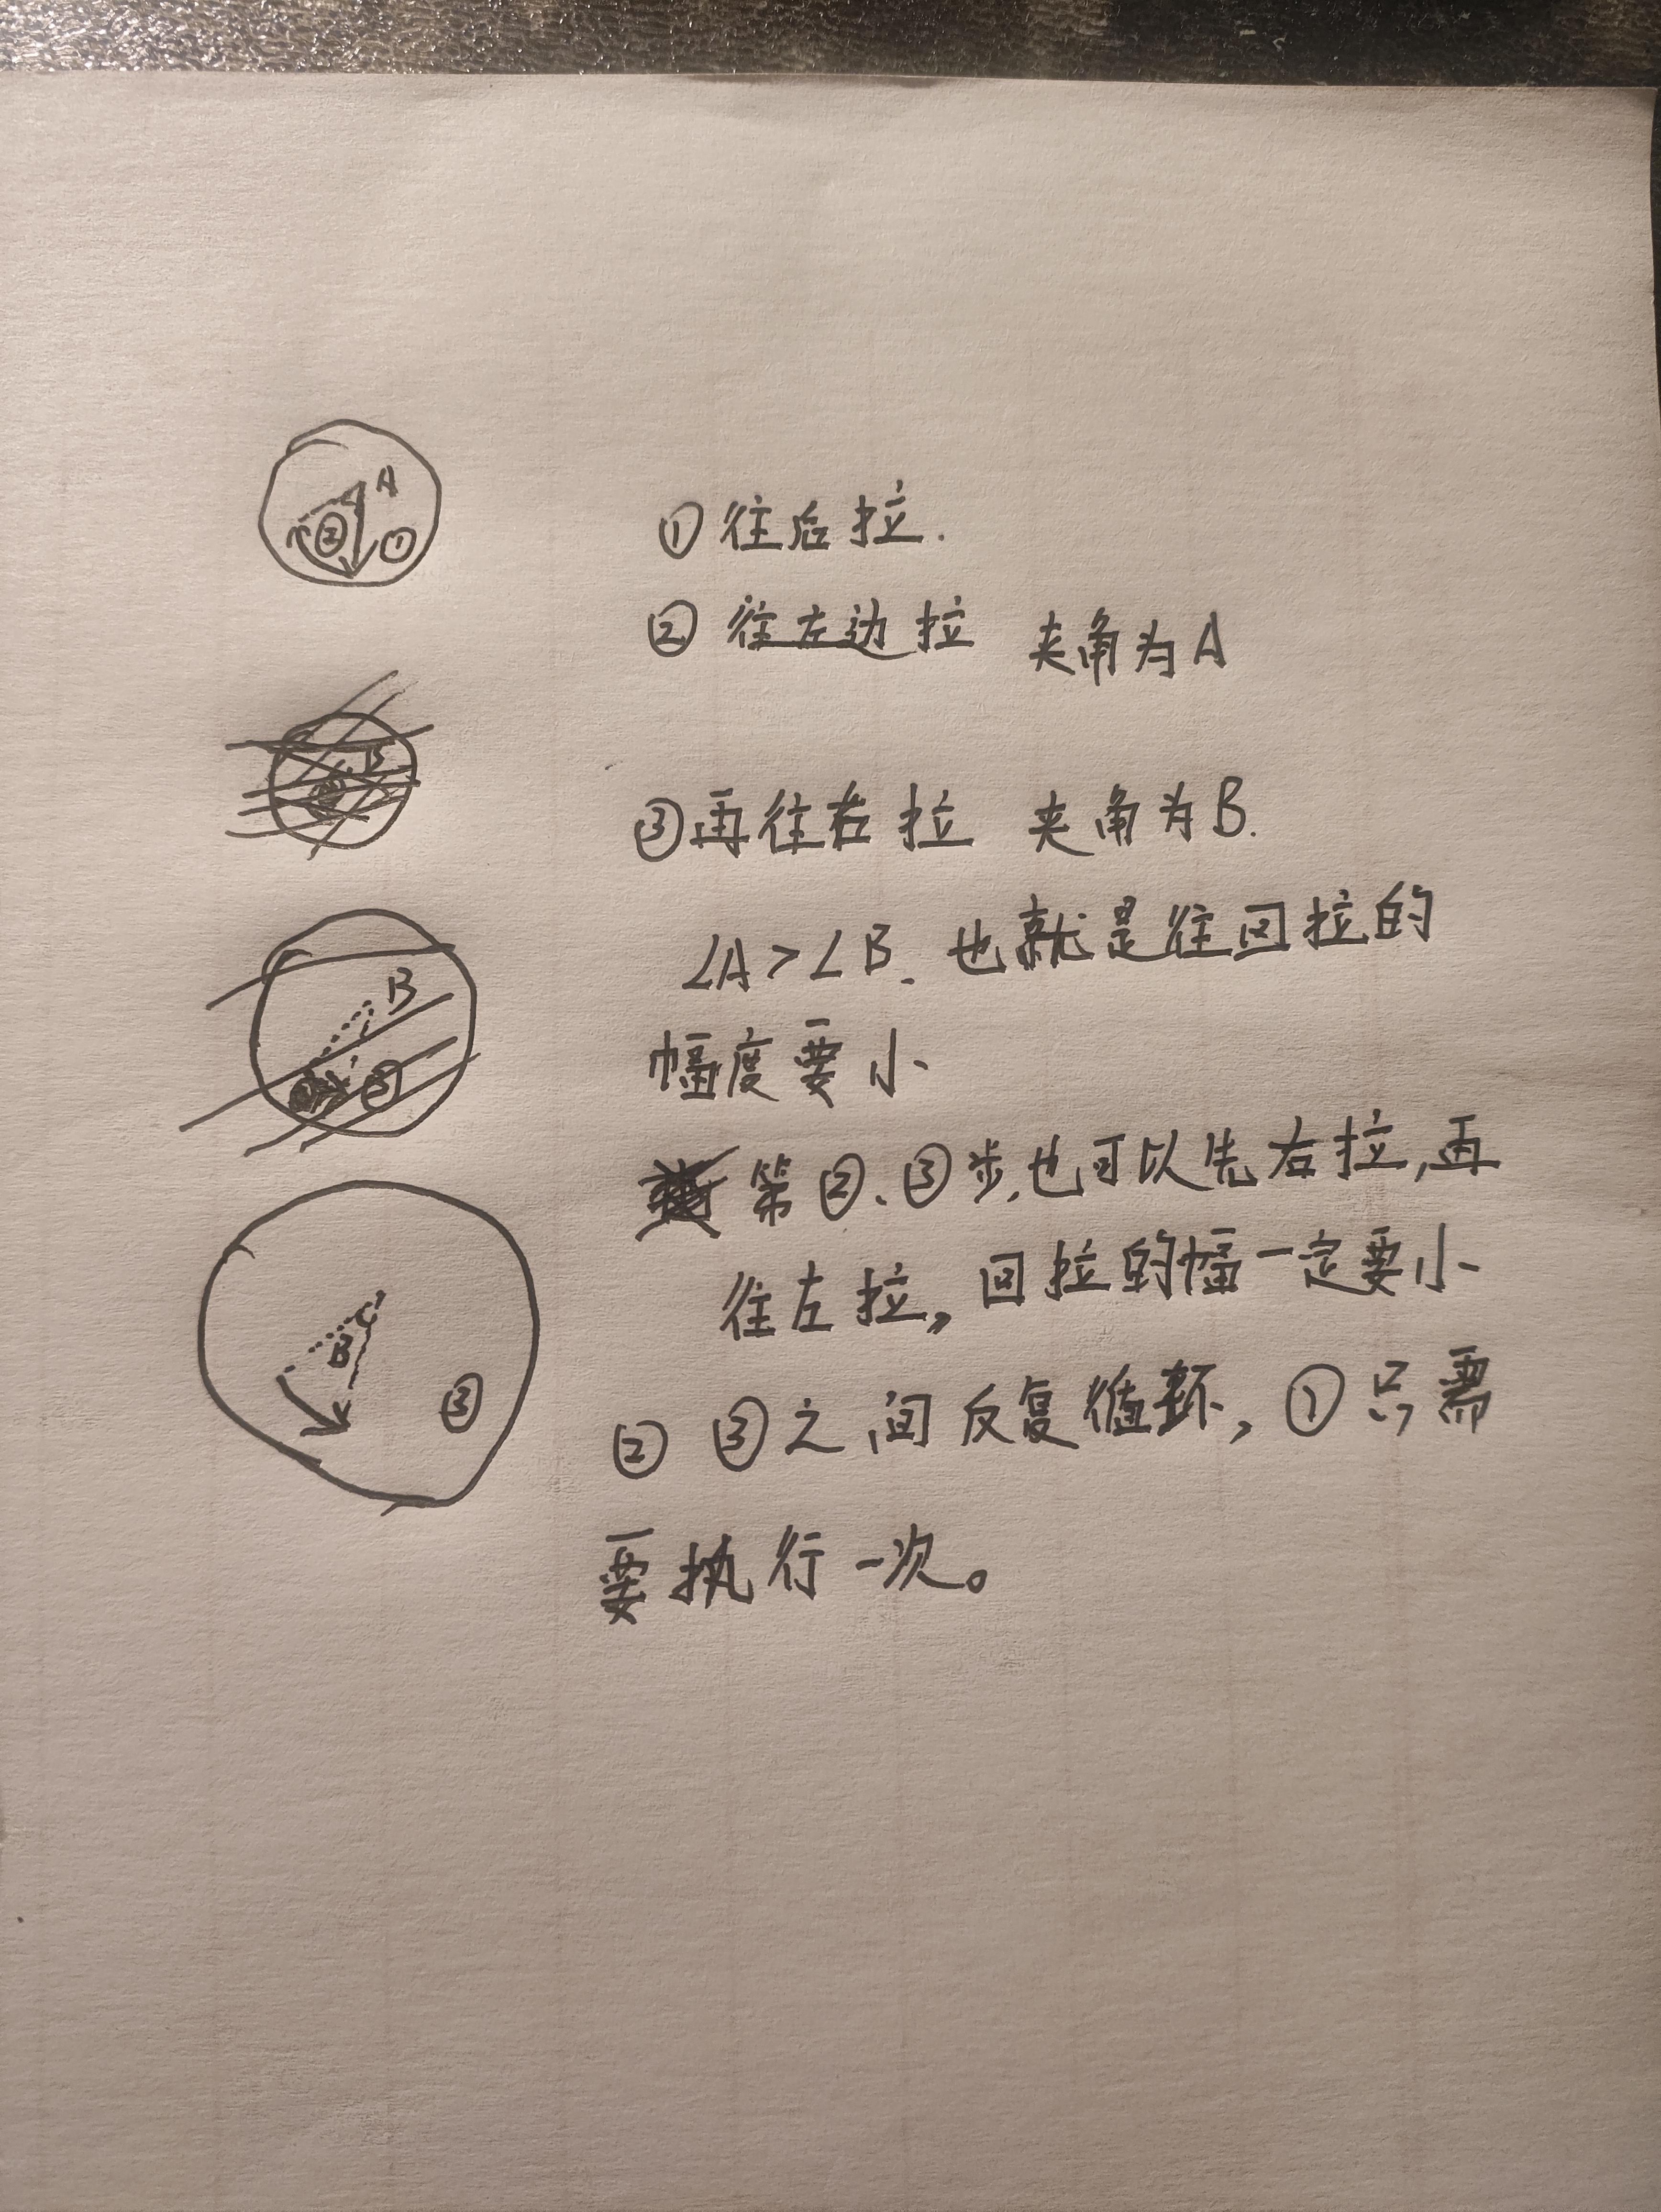 A
② ①
① 往后拉.
② 往左边拉 夹角为A
B
③ 再往右拉 夹角为B.
∠A>∠B. 也就是往回拉的
B
③
幅度要小
第②、③步,也可以先右拉,再
往左拉, 回拉的幅一定要小
B
③
② ③之间反复循环, ①只需
要执行一次。